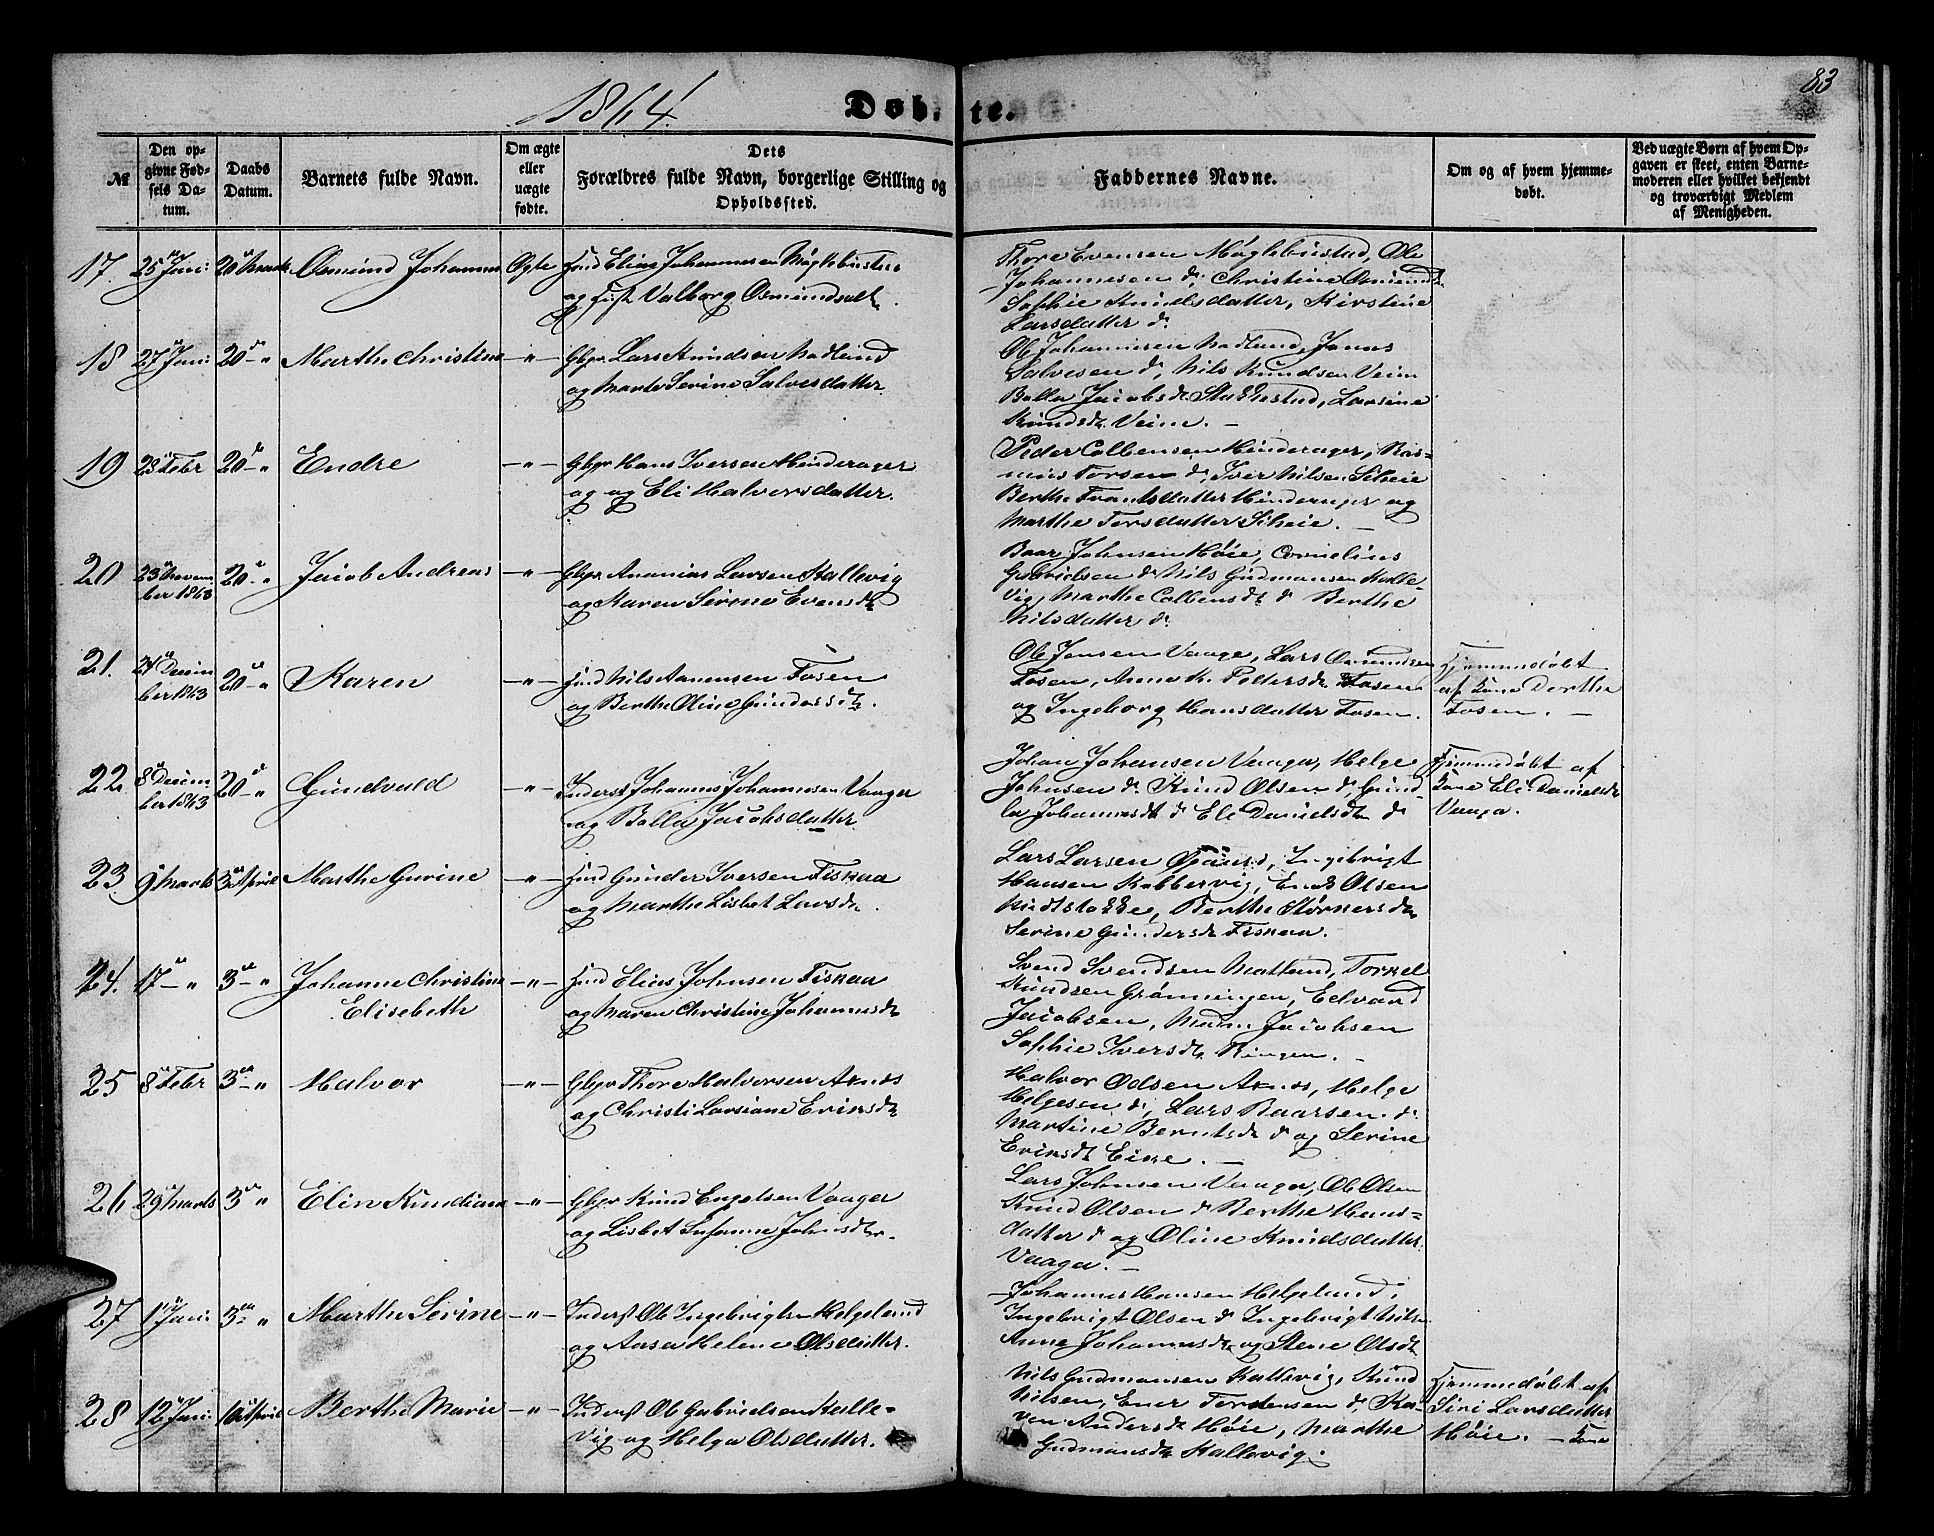 83
1864.
Døbte.
№
Den op-
givne Fød-
sels Da-
tum.
Daabs
Datum.
Barnets fulde Navn.
Om ægte
eller
uægte
fødte.
Dets
Forældres fulde Navn, borgerlige Stilling og
Opholdssted.
Faddernes Navne.
Om og af hvem hjemme-
døbt.
Ved uægte Børn af hvem Op-
gaven er skeet, enten Barne-
moderen eller hvilket bekjendt
og troværdigt Medlem
af Menigheden.
17. 25 Jan: 20 Marts Osmund Johannes Ægte Huus Elias Johannesen
og Valborg Osmundsdtr.
Thore Evensen Møglebustad, Ole
Johannesen do, Christine Osmundsd
Sophie Knudsdatter, Kirstine
Larsdatter do
18 27 Jan: 20 - " Marthe Christine - " - Gbpr Lars Knudsen Nadland
og Marte Serine Salvesdatter.
Ole Johannesen Nadland, Jonas
Salvesen do, Nils Knudsen Veim
Balla Jacobsd Stakkestad, Larsine
Knudsdr. Veim. -
19 28 Febr 20 - " Endre - " - Gbpr Hans Iversen Hinderager
og og Eli Halversdatter.
Peder Colbensen Hinderager, Ras-
mus Torsen do, Iver Nilsen Scheie
Berthe Frantsdatter Hinderager og
Marthe Torsdatter Scheie. -
20 23 Novem-
ber 1863 20 - " Jacob Andreas - " - Gbpr Ananias Larsen Kallevig
og Karen Serine Evensdr
Baar Johnsen Høie, Cornelius
Gabrielsen do Nils Gudmansen Kalle-
vig, Marthe Colbensdr do Berthe
Nilsdatter do
21. 21 Decem
ber 1863 20 - " Karen - " - Huus Nils Aanensen Fosen
og Berthe Oline Gundersdtr.
Ole Jensen Vaage, Lars Osmundsen
Fosen, Anna K. Pedersdr Fosen
og Ingeborg Hansdatter Fosen.
Hjemmedøbt
af Kone Dorthe
Fosen. -
22 8 Decem
ber 1863 20 - " Gundvald - " - Inderst Johannes Johannesen Vaage
og Balla Jacobsdatter
Johan Johansen Vaage, Helge
Johnsen do Knud Olsen do, Gund-
la Johannesdtr do Eli Danielsdtr do
Hjemmedøbt af
Kone Eli Danielsdr
Vaage.
23 9 Marts 3 April Marthe Gurine - " - Huus Gunder Iversen Fisknaa
og Marthe Lisbet Larsdr.
Lars Larsen, Ingebrigt
Hansen Kobbervig, Olsen
Berthe Størkersdr
Serine Gundersdr Fisknaa.
24. 17 - " 3 - " Johanne Christine
Elisebeth - " - Huus Elias Johnsen Fisknaa
og Maren Christine Johannesdr
Svend Svendsen Matland, Torkel
Knudsen Grønningen, Edvard
Jacobsen, Jacobsen
Sophie Iversdr Ringen. -
25 8 Febr 3 - " Halvor - " - Gbpr Thore Halversen Aknes
og Christi Larsiane Eriksdr
Halvor Odsen Aknes, Helge
Helgesen do, Lars Baarsen do
Martine Berntsdr do og Serine
Eriksdr Eike. -
26 29 Marts 3 " Elin Kundiane - " - Gbpr Knud Engelsen Vaage
og Lisbet Susanne Johnsdtr.
Lars Johnsen Vaage, Ole Olsen
Knud Olsen do Berthe Hans-
datter do og Oline Knudsdatter
Vaage. -
27 1 Jan: 3 " Marthe Serine - " - Inderst Ole Ingebrigtsen Helgeland
og Aasa Helene Olsdatter.
Johannes Hansen Helgeland,
Ingebrigt Olsen do Ingebrigt Nilsen
Anne Johannesdr og Stene Olsdr
28 12 Jan: 10 April Berthe Marie - " - Inderst Ole Gabrielsen Kalle-
vig og Helga Olsdatter.
Nils Gudmansen Kallevig, Knud
Nilsen, Ener Torstensen do, Ka-
ren Andersdr Høie, Marthe
Gudmansdr Kallevig.
Hjemmedøbt af
Siri Larsdatter
Høie. - Kone